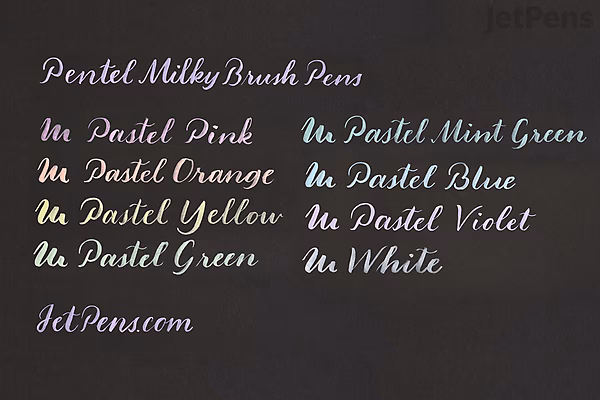 JetPens
Pentel Milky Brush Pens
m Pastel Pink
m Pastel Orange
m Pastel Yellow
m Pastel Green
m Pastel Mint Green
m Pastel Blue
m Pastel Violet
m White
JetPens.com